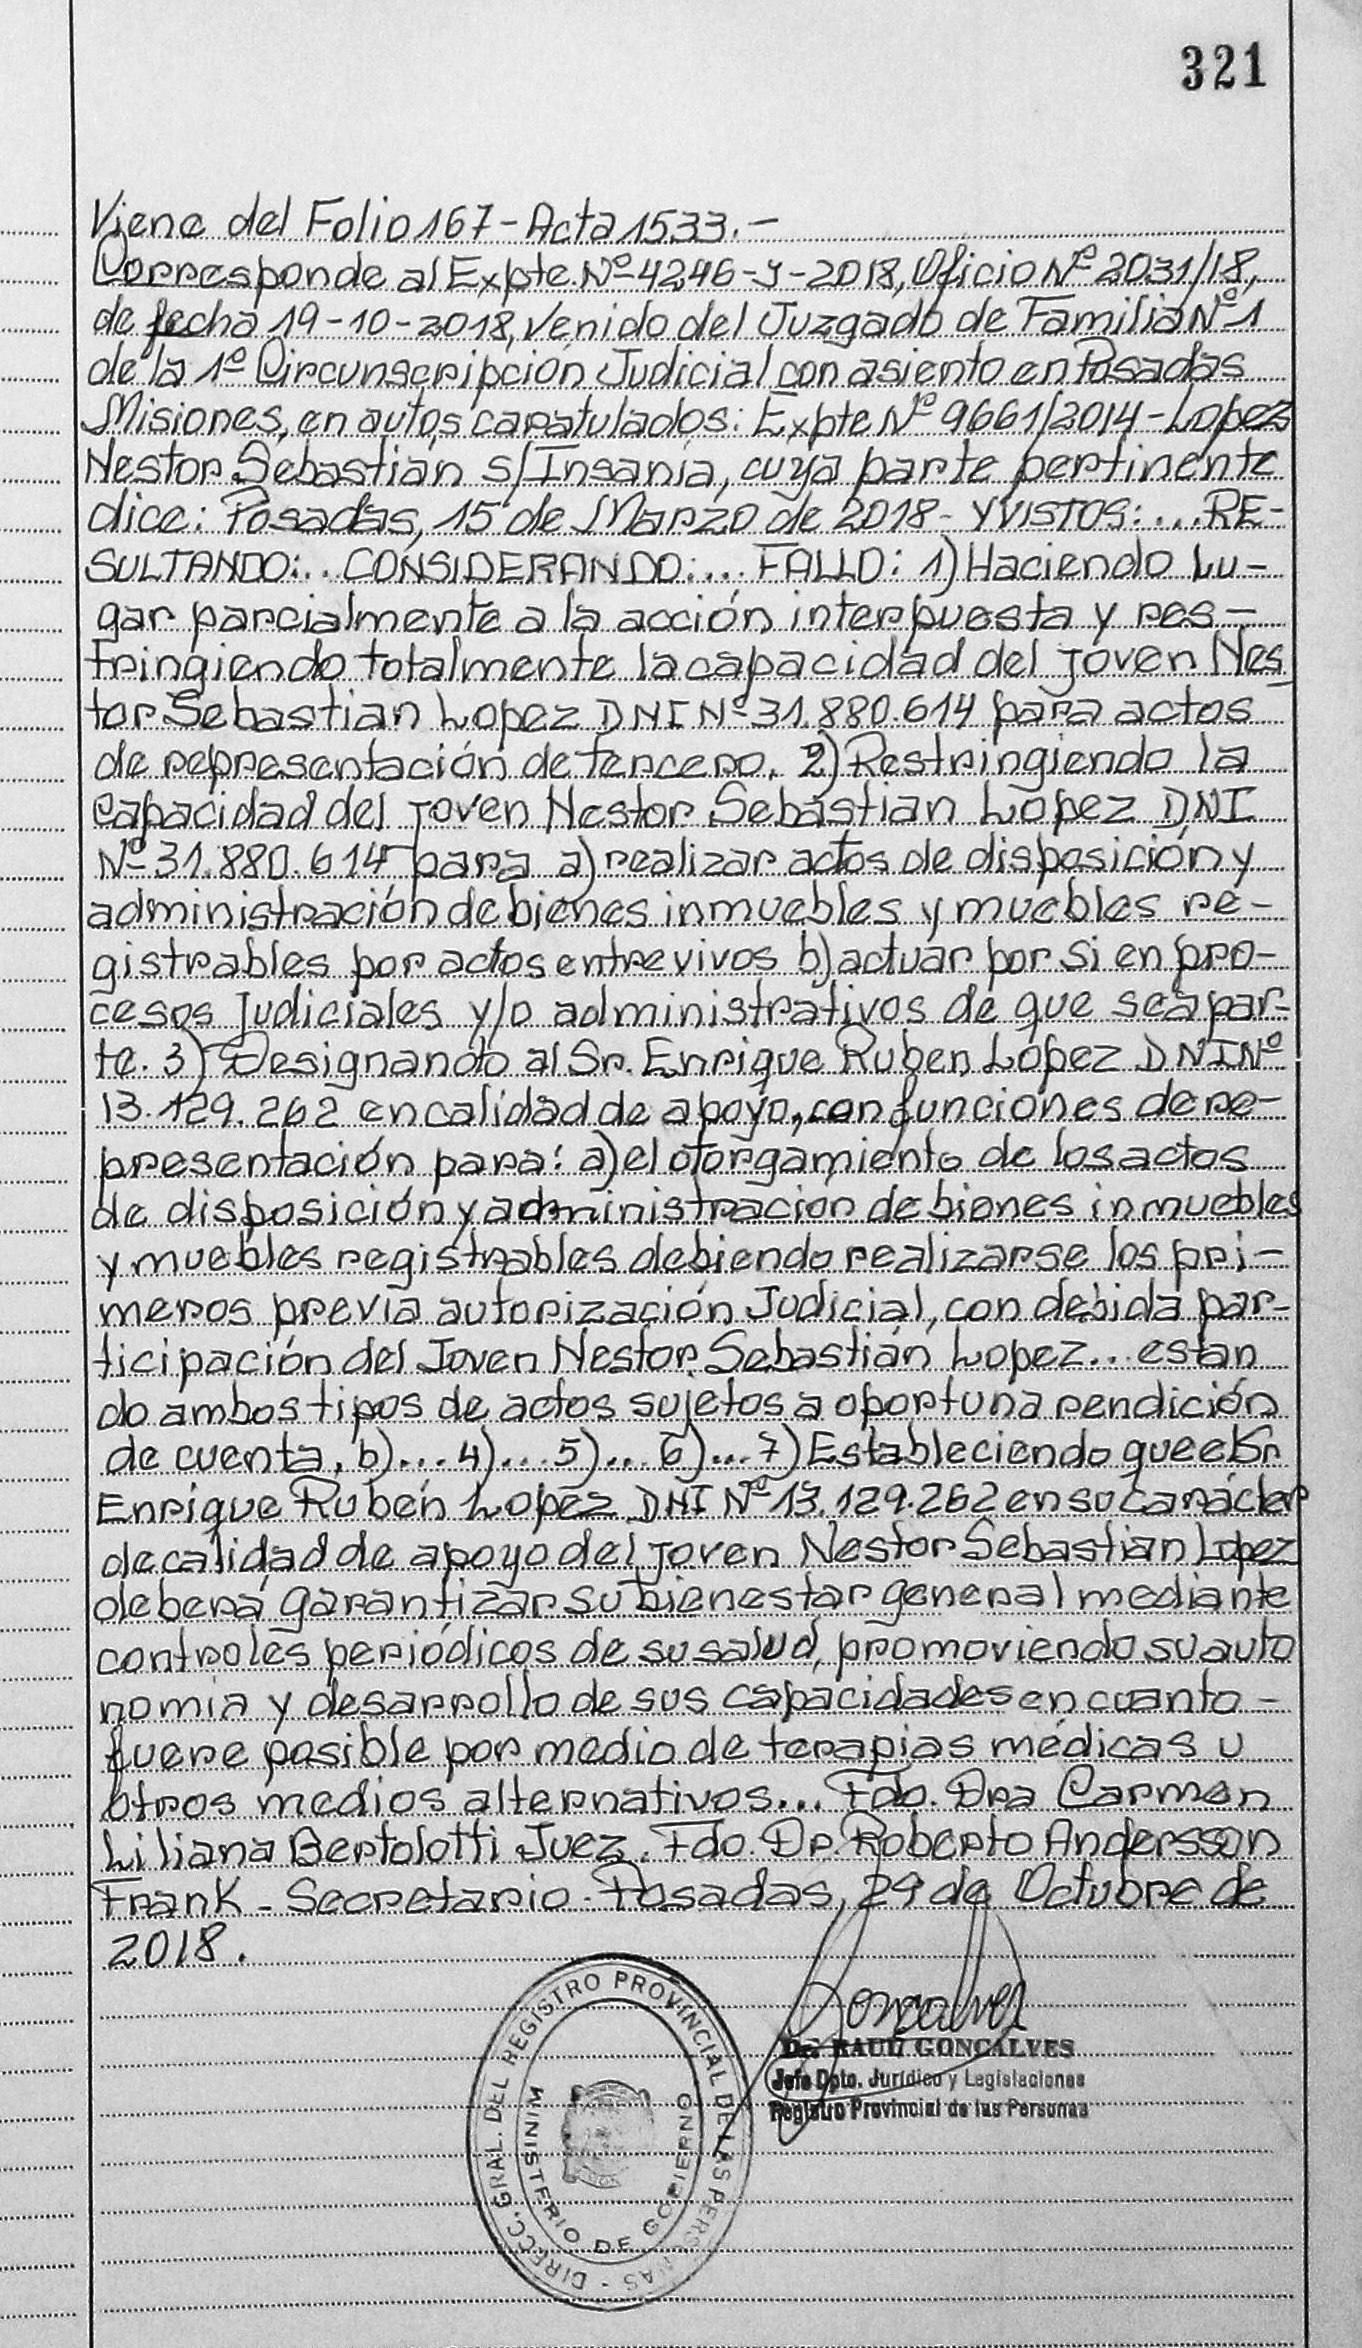 321
Viene del Folio 167 - Acta 1533. -
Corresponde al Expte. Nº 4246-Y-2018, Oficio Nº 2031/18,
de fecha 19-10-2018, Venido del Juzgado de Familia Nº 1
de la 1º Circunscripción Judicial con asiento en Posadas
Misiones, en autos caratulados: Expte Nº 9661/2014 - Lopez
Nestor Sebastian s/Insania, cuya parte pertinente
dice: Posadas, 15 de Marzo de 2018 - Y VISTOS: ... RE-
SULTANDO: .. CONSIDERANDO: ... FALLO: 1) Haciendo Lu-
gar parcialmente a la acción interpuesta y res-
tringiendo totalmente la capacidad del joven Nes
tor Sebastian Lopez DNI Nº 31.880.614 para actos
de representación de tercero. 2) Restringiendo la
capacidad del joven Nestor Sebastian Lopez DNI
Nº 31.880.614 para a) realizar actos de disposición y
administración de bienes inmuebles y muebles re-
gistrables por actos entre vivos b) actuar por si en pro-
cesos Judiciales y/o administrativos de que sea par-
te. 3) Designando al Sr. Enrique Ruben López DNI Nº
13.129.262 en calidad de apoyo, con funciones de re-
presentación para: a) el otorgamiento de los actos
de disposición y administración de bienes inmuebles
y muebles registrables debiendo realizarse los pri-
meros previa autorización Judicial, con debida par-
ticipación del Joven Nestor Sebastián Lopez... estan
do ambos tipos de actos sujetos a oportuna rendición
de cuenta. b)... 4)... 5)... 6)... 7) Estableciendo que el Sr
Enrique Rubén Lopez DNI Nº 13.129.262 en su carácter
de calidad de apoyo del joven Nestor Sebastian Lopez
deberá garantizar su bienestar general mediante
controles periódicos de su salud, promoviendo su auto
nomia y desarrollo de sus capacidades en cuanto -
fuere posible por medio de terapias médicas u
otros medios alternativos... Fdo. Dra Carmen
Liliana Bertolotti Juez. Fdo. Dr. Roberto Andersson
Frank - Secretario. Posadas, 29 de Octubre de
2018.
Goncalves
Dr. RAUL GONCALVES
Jefe Dpto. Jurídico y Legislaciones
Registro Provincial de las Personas
DIRECC. GRAL. DEL REGISTRO PROVINCIAL DE LAS PERSONAS -
MINISTERIO DE GOBIERNO